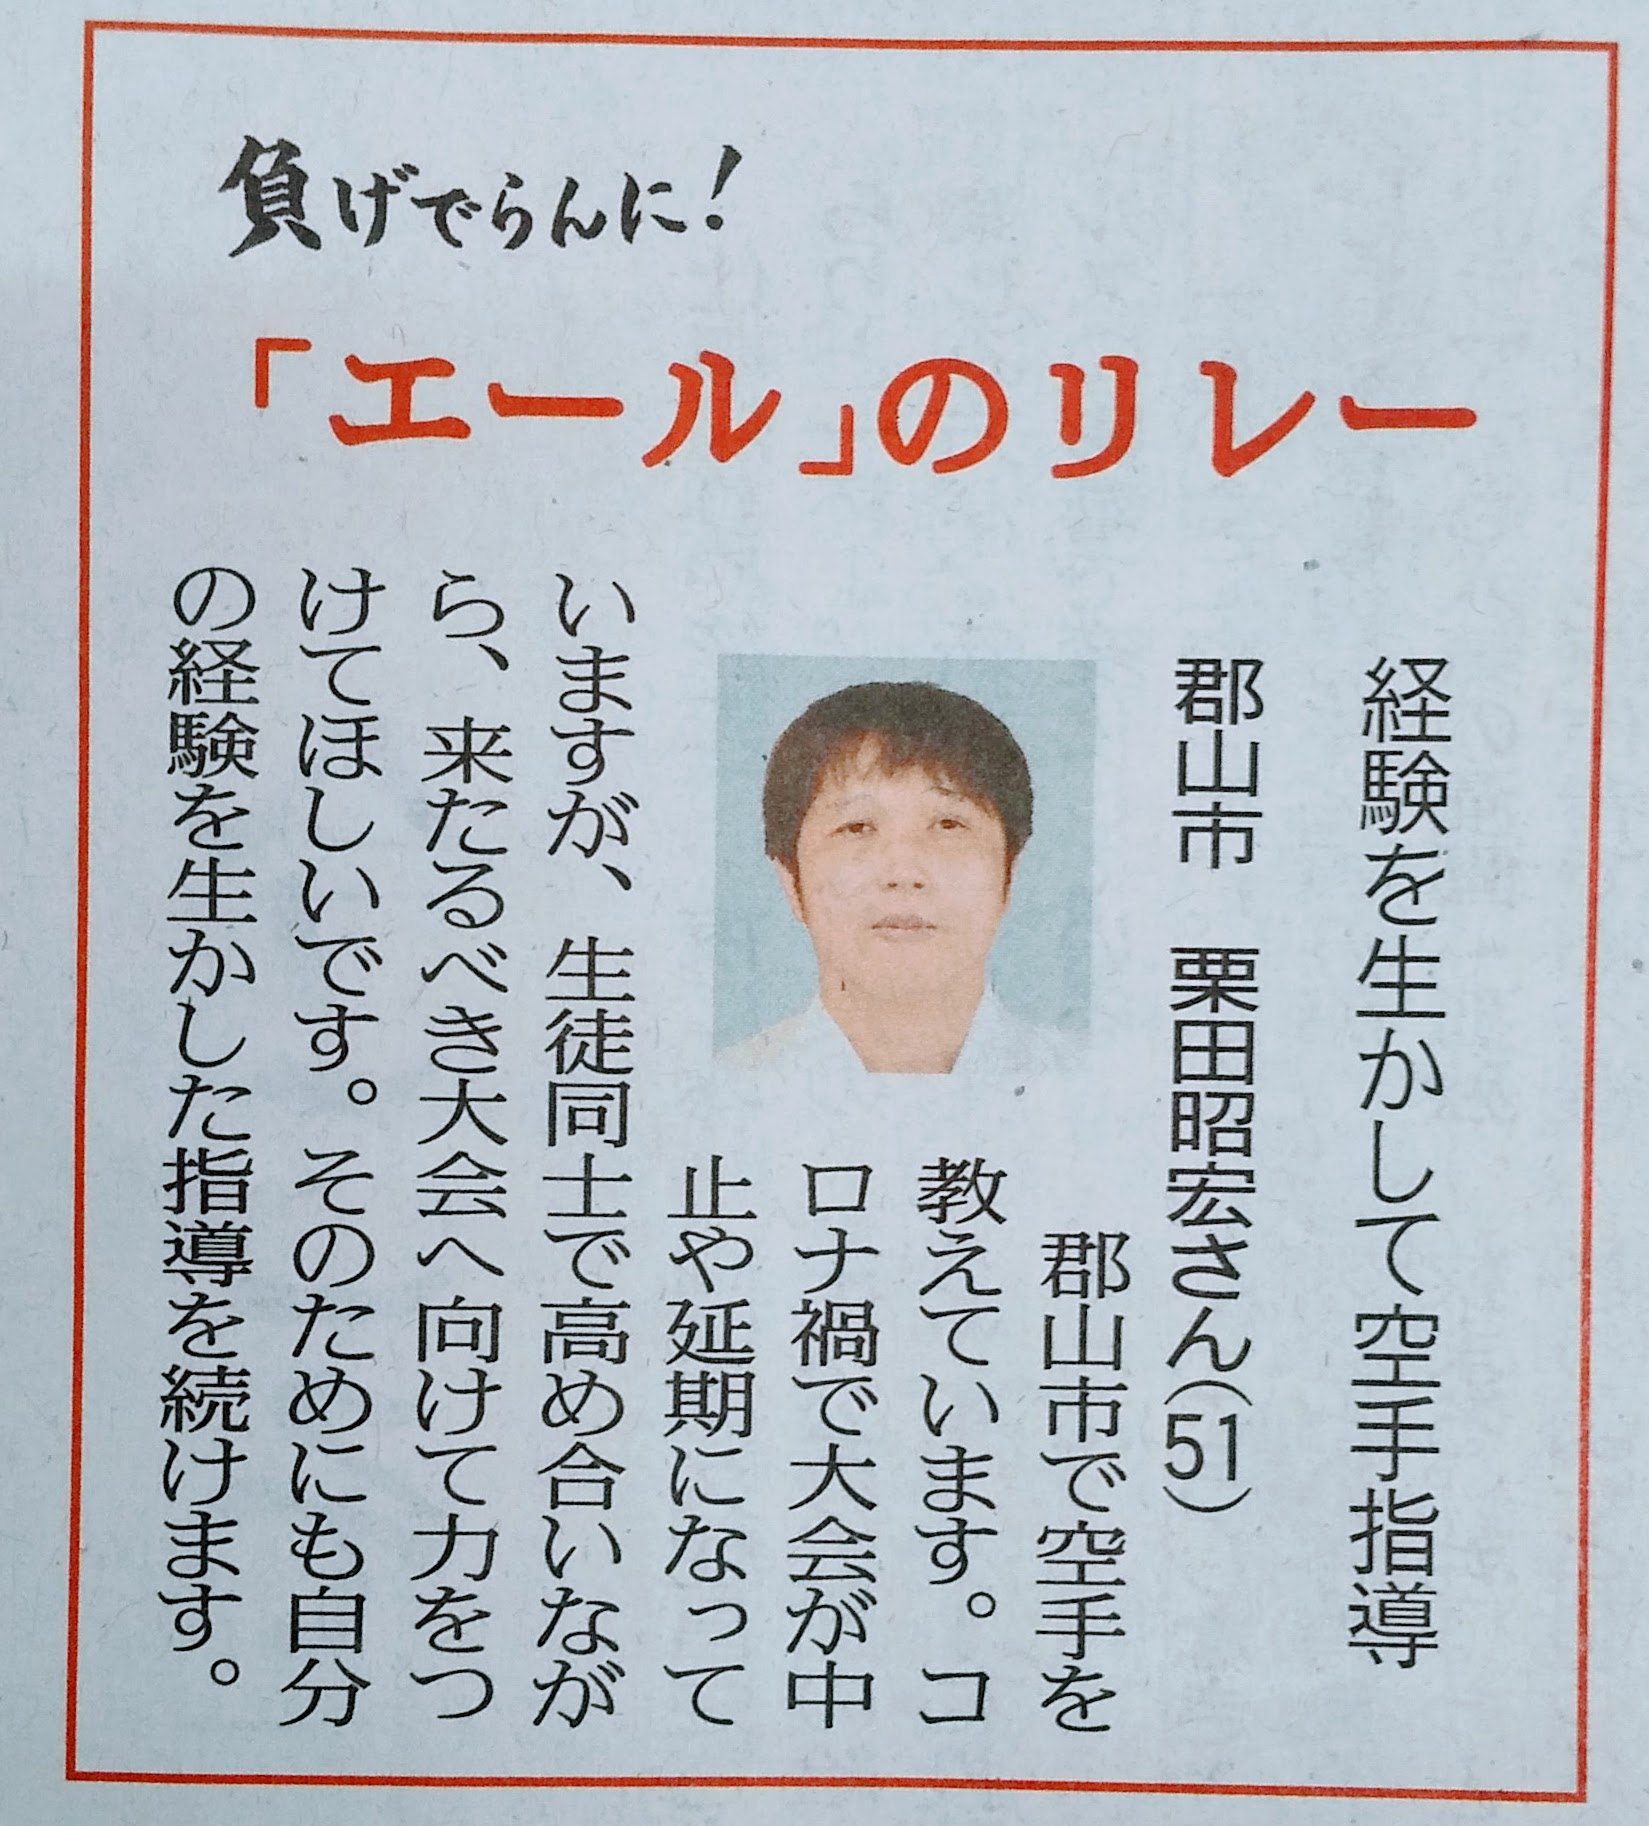 負げでらんに!
「エール」のリレー
経験を生かして空手指導
郡山市　栗田昭宏さん(51)
郡山市で空手を
教えています。コ
ロナ禍で大会が中
止や延期になって
いますが、生徒同士で高め合いなが
ら、来たるべき大会へ向けて力をつ
けてほしいです。そのためにも自分
の経験を生かした指導を続けます。